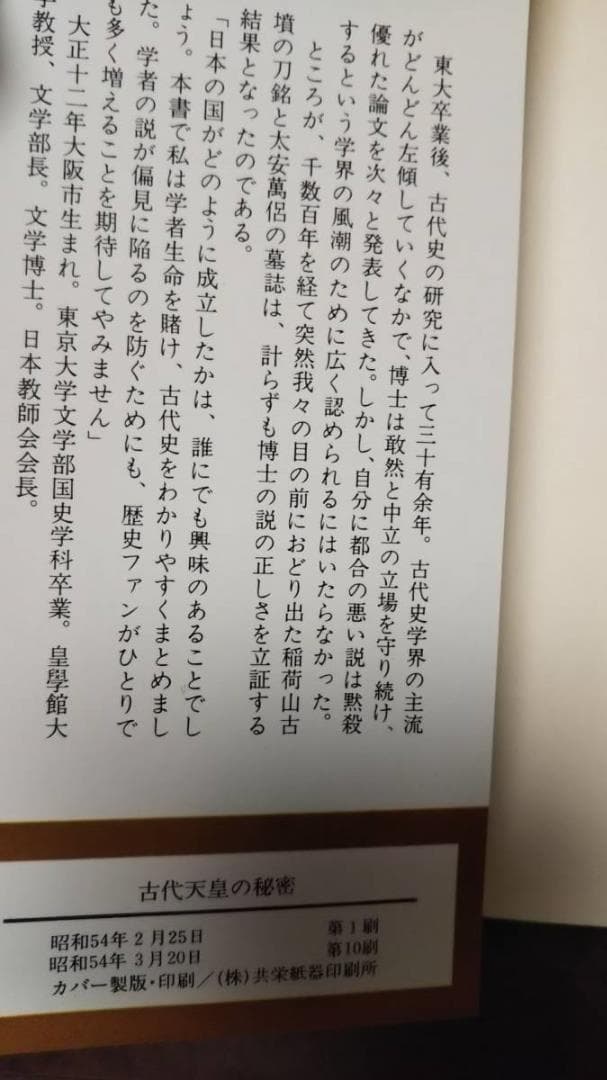 東大卒業後、古代史の研究に入って三十有余年。古代史学界の主流
がどんどん左傾していくなかで、博士は敢然と中立の立場を守り続け、
優れた論文を次々と発表してきた。しかし、自分に都合の悪い説は黙殺
するという学界の風潮のために広く認められるにはいたらなかった。
ところが、千数百年を経て突然我々の目の前におどり出た稲荷山古
墳の刀銘と太安萬侶の墓誌は、計らずも博士の説の正しさを立証する
結果となったのである。
「日本の国がどのように成立したかは、誰にでも興味のあることでし
ょう。本書で私は学者生命を賭け、古代史をわかりやすくまとめまし
た。学者の説が偏見に陥るのを防ぐためにも、歴史ファンがひとりで
も多く増えることを期待してやみません」
大正十二年大阪市生まれ。東京大学文学部国史学科卒業。皇學館大
学教授、文学部長。文学博士。日本教師会会長。
古代天皇の秘密
昭和54年2月25日 第1刷
昭和54年3月20日 第10刷
カバー製版・印刷／(株)共栄紙器印刷所